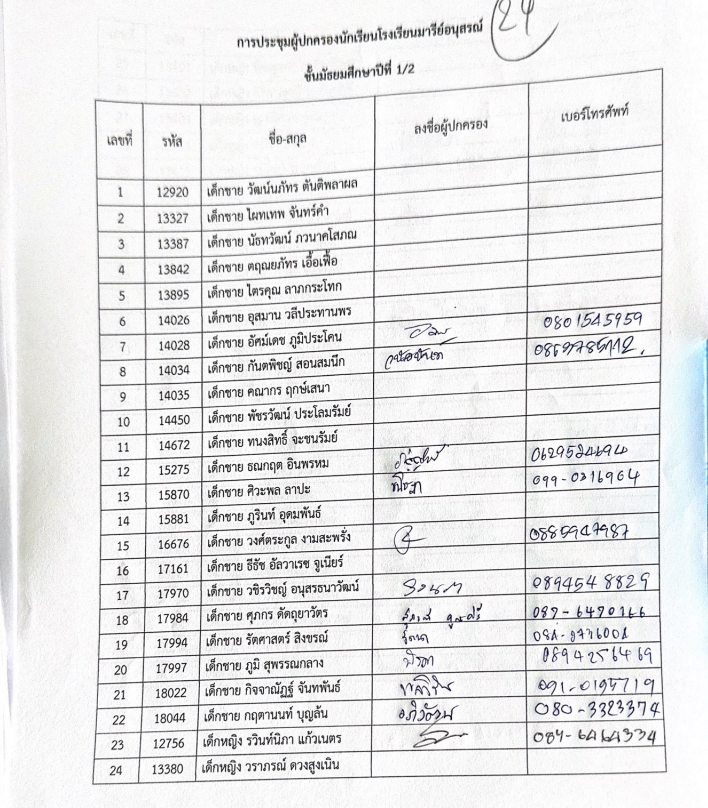 24
การประชุมผู้ปกครองนักเรียนโรงเรียนมารีย์อนุสรณ์
ชั้นมัธยมศึกษาปีที่ 1/2
เลขที่ รหัส ชื่อ-สกุล ลงชื่อผู้ปกครอง เบอร์โทรศัพท์
1 12920 เด็กชาย วัฒน์นภัทร ตันติพลาผล
2 13327 เด็กชาย ไผทเทพ จันทร์คำ
3 13387 เด็กชาย นัธทวัฒน์ ภวนาคโสภณ
4 13842 เด็กชาย ตฤณยภัทร เอื้อเฟื้อ
5 13895 เด็กชาย ไตรคุณ ลาภกระโทก
6 14026 เด็กชาย อุสมาน วลีประทานพร
7 14028 เด็กชาย อัศม์เดช ภูมิประโคน 0801545959
8 14034 เด็กชาย กันตพิชญ์ สอนสมนึก
9 14035 เด็กชาย คณากร ฤกษ์เสนา
10 14450 เด็กชาย พัชรวัฒน์ ประโลมรัมย์
11 14672 เด็กชาย ทนงสิทธิ์ จะชนรัมย์
12 15275 เด็กชาย ธณกฤต อินพรหม
13 15870 เด็กชาย ศิวะพล ลาปะ 099-0216964
14 15881 เด็กชาย ภูรินท์ อุดมพันธ์
15 16676 เด็กชาย วงศ์ตระกูล งามสะพรั่ง 0885947987
16 17161 เด็กชาย ธีธัช อัลวาเรซ จูเนียร์
17 17970 เด็กชาย วชิรวิชญ์ อนุสรธนาวัฒน์ 0894548829
18 17984 เด็กชาย ศุภกร ดัดถุยาวัตร
19 17994 เด็กชาย รัตศาสตร์ สิงขรณ์
20 17997 เด็กชาย ภูมิ สุพรรณกลาง 0894256469
21 18022 เด็กชาย กิจจาณัฏฐ์ จันทพันธ์ 091-0195719
22 18044 เด็กชาย กฤตานนท์ บุญล้น 080-3323374
23 12756 เด็กหญิง รวินท์นิภา แก้วเนตร 084-6464334
24 13380 เด็กหญิง วราภรณ์ ดวงสูงเนิน